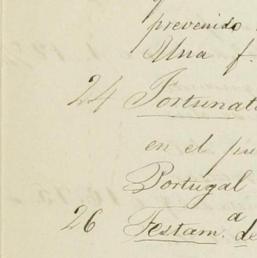 prevenido
Una f.
24 Fortunat
en el pu
Portugal
26 Festam.ª de